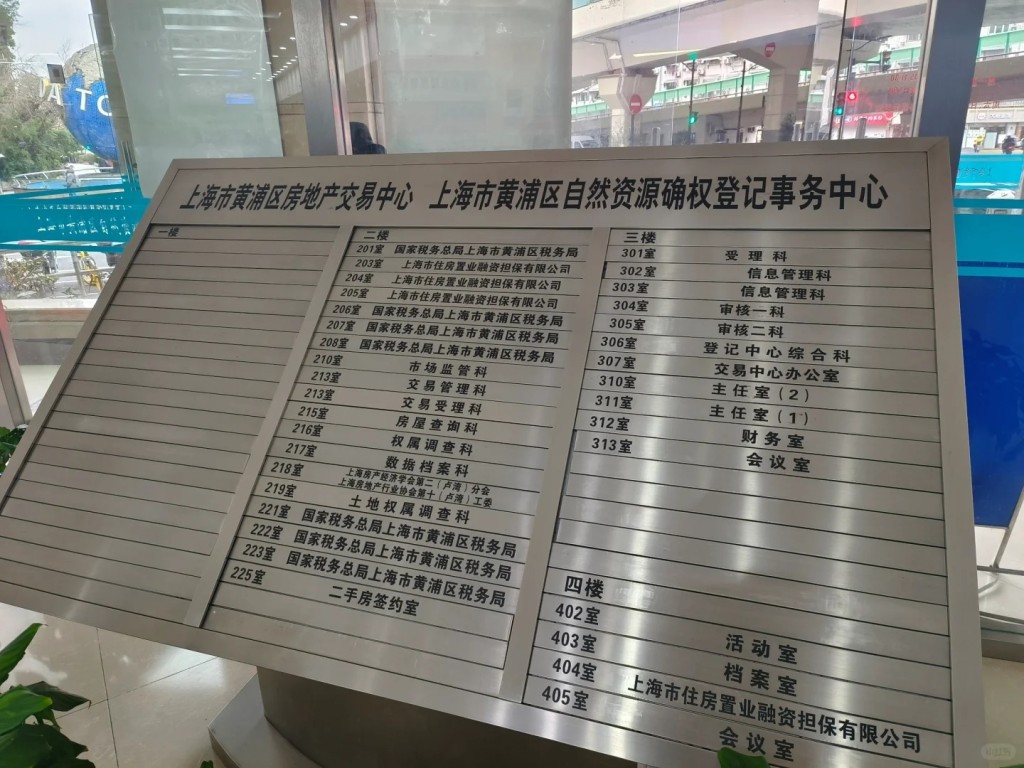 上海市黄浦区房地产交易中心 上海市黄浦区自然资源确权登记事务中心
一楼
二楼
201室 国家税务总局上海市黄浦区税务局
203室 上海市住房置业融资担保有限公司
204室 上海市住房置业融资担保有限公司
205室 上海市住房置业融资担保有限公司
206室 国家税务总局上海市黄浦区税务局
207室 国家税务总局上海市黄浦区税务局
208室 国家税务总局上海市黄浦区税务局
210室 市场监管科
213室 交易管理科
213室 交易受理科
215室 房屋查询科
216室 权属调查科
217室 数据档案科
218室 上海房产经济学会第二（卢湾）分会
上海房地产行业协会第十（卢湾）工委
219室 土地权属调查科
221室 国家税务总局上海市黄浦区税务局
222室 国家税务总局上海市黄浦区税务局
223室 国家税务总局上海市黄浦区税务局
225室 二手房签约室
三楼
301室 受理科
302室 信息管理科
303室 信息管理科
304室 审核一科
305室 审核二科
306室 登记中心综合科
307室 交易中心办公室
310室 主任室（2）
311室 主任室（1）
312室 财务室
313室 会议室
四楼
402室 活动室
403室 档案室
404室 上海市住房置业融资担保有限公司
405室 会议室